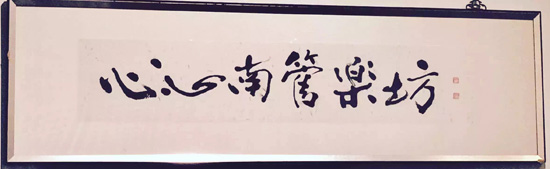 心心南管楽坊